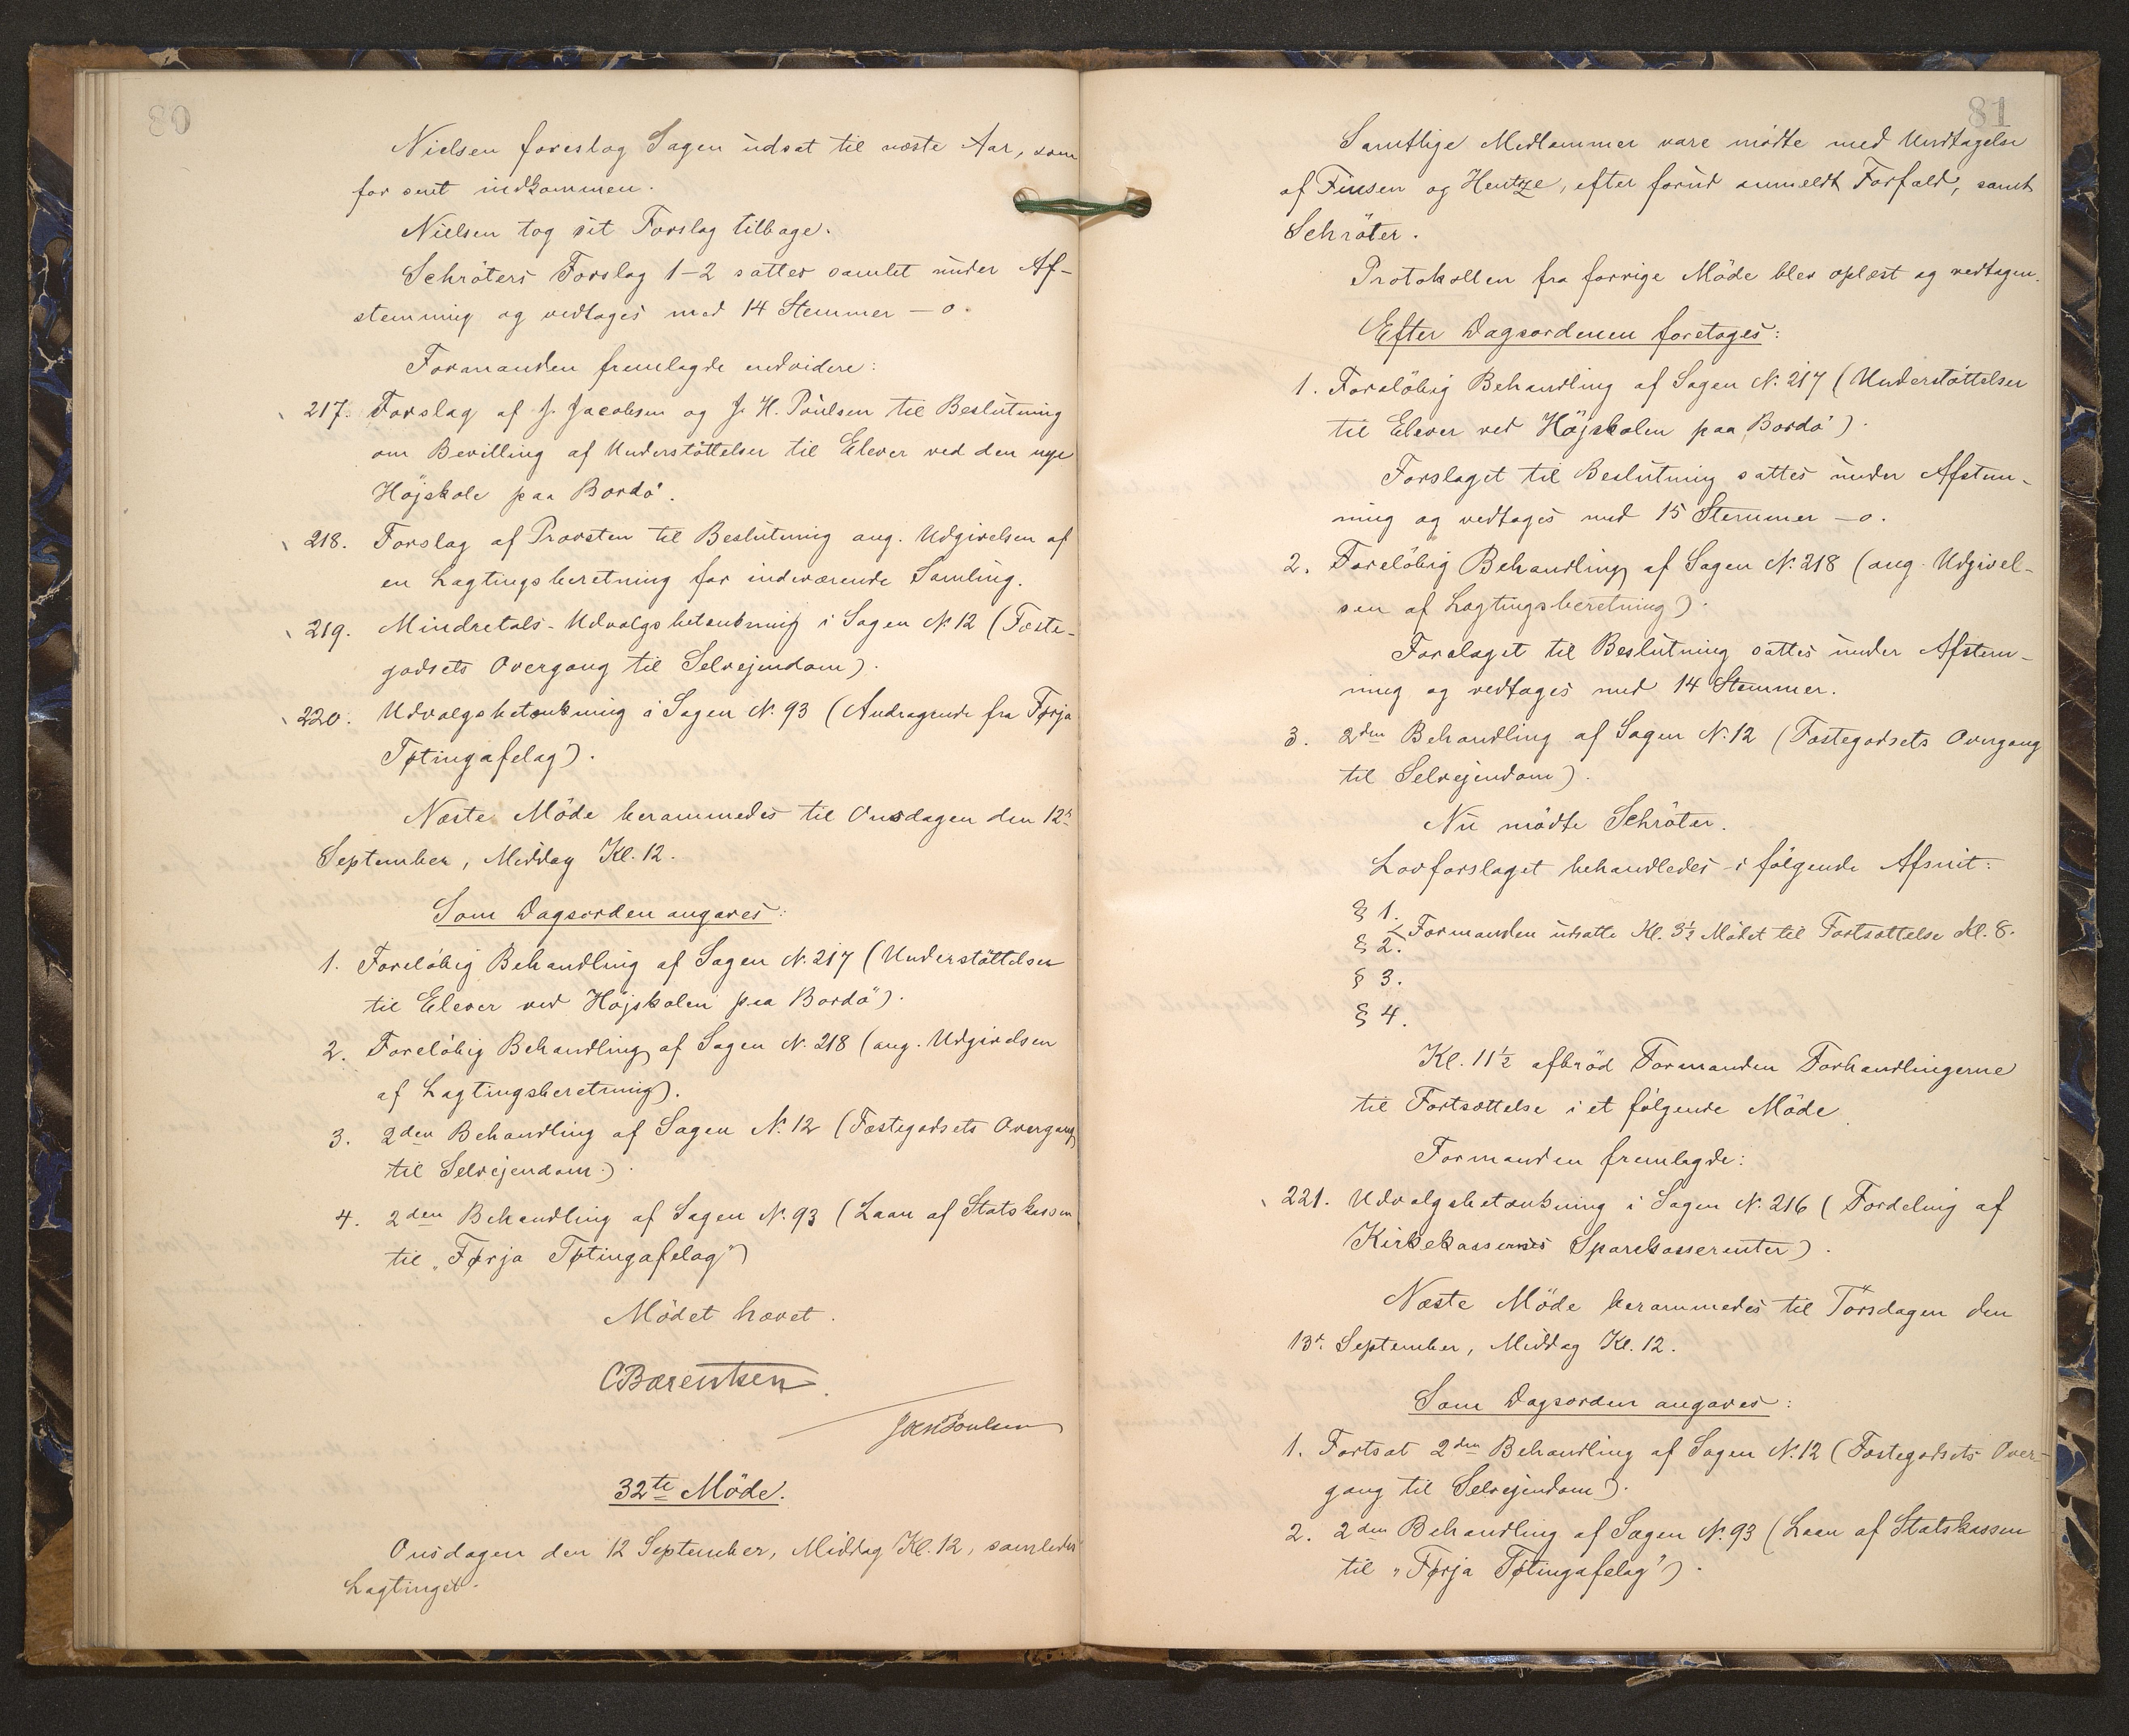 80
Nielsen foreslog Sagen udsat til næste Aar, som
for sent indkommen.
Nielsen tog sit Forslag tilbage.
Schröters Forslag 1-2 sattes samlet under Af-
stemning og vedtoges med 14 Stemmer — 0.
Formanden fremlagde endvidere:
217. Forslag af J. Jacobsen og J. H. Poulsen til Beslutning
om Bevilling af Understöttelser til Elever ved den nye
Höjskole paa Bordö.
218. Forslag af Provsten til Beslutning ang. Udgivelsen af
en Lagtingsberetning for indeværende Samling.
219. Mindretals-Udvalgsbetænkning i Sagen N. 12 (Fæste-
godsets Overgang til Selvejendom).
220. Udvalgsbetænkning i Sagen N. 93 (Andragende fra Førja
Tøtingafelag).
Næste Möde berammedes til Onsdagen den 12te
September, Middag Kl. 12.
Som Dagsorden angaves:
1. Foreløbig Behandling af Sagen N. 217 (Understöttelser
til Elever ved Höjskolen paa Bordö).
2. Forelöbig Behandling af Sagen N. 218 (ang. Udgivelsen
af Lagtingsberetning).
3. 2den Behandling af Sagen N. 12 (Fæstegodsets Overgang
til Selvejendom).
4. 2den Behandling af Sagen N. 93 (Laan af Statskassen
til „Førja Tøtingafelag")
Mödet hævet.
CBærentsen
32te Möde.
Onsdagen den 12 September, Middag Kl. 12, samledes
Lagtinget.
81
Samtlige Medlemmer vare mödte med Undtagelse
af Finsen og Hentze, efter forud anmeldt Forfald, samt
Schröter.
Protokollen fra forrige Möde blev oplæst og vedtagen.
Efter Dagsordenen foretoges:
1. Forelöbig Behandling af Sagen N. 217 (Understöttelser
til Elever ved Höjskolen paa Bordö).
Forslaget til Beslutning sattes under Afstem-
ning og vedtoges med 15 Stemmer — 0.
2. Forelöbig Behandling af Sagen N. 218 (ang. Udgivel-
sen af Lagtingsberetning).
Forslaget til Beslutning sattes under Afstem-
ning og vedtoges med 14 Stemmer.
3. 2den Behandling af Sagen N. 12 (Fæstegodsets Overgang
til Selvejendom).
Nu mödte Schröter.
Lovforslaget behandledes i fölgende Afsnit:
§ 1.
Formanden udsatte Kl. 3½ Mödet til Fortsættelse Kl. 8.
§ 2.
§ 3.
§ 4.
Kl. 11½ afbröd Formanden Forhandlingerne
til Fortsættelse i et fölgende Möde.
Formanden fremlagde:
221. Udvalgsbetænkning i Sagen N. 216 (Fordeling af
Kirkekassernes Sparekasserenter).
Næste Möde berammedes til Torsdagen den
13de September, Middag Kl. 12.
Som Dagsorden angaves:
1. Fortsat 2den Behandling af Sagen N. 12 (Fæstegodsets Over-
gang til Selvejendom).
2. 2den Behandling af Sagen N. 93 (Laan af Statskassen
til „Førja Tøtingafelag").